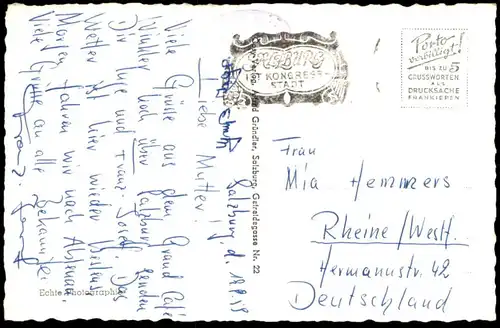 Salzburg, d. 18.9.59
Liebe Mutter!
Viele Grüße aus dem Grand Café
Winkler hoch über Salzburg senden
Dir Ilse und Franz-Josef. Das
Wetter ist hier wieder bestens.
Morgen fahren wir nach
Viele Grüße an alle Bekannten
Echte Photographie
Gründler, Salzburg, Getreidegasse Nr. 22
Salzburg
KONGRESS-
STADT
Porto
verbilligt!
BIS ZU 5
GRUSSWORTEN
ALS
DRUCKSACHE
FRANKIEREN
Frau
Mia Hemmers
Rheine/Westf.
Hermannstr. 42
Deutschland